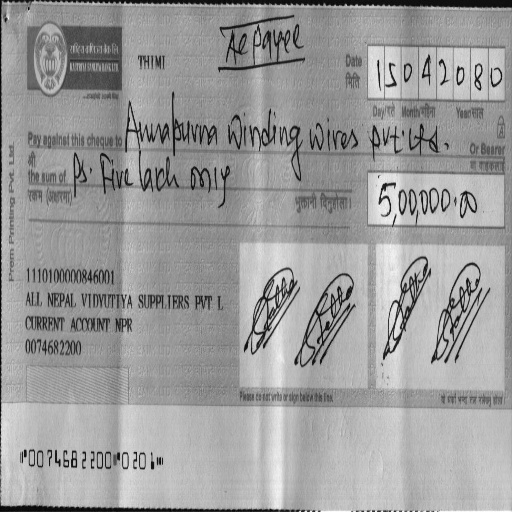 Ac payee
THIMI
Date
मिति
15042080
Day/गते Month/महिना Year/साल
Pay against this cheque to Annapurna Winding Wires Pvt. Ltd.
Or Bearer
श्री
the sum of Rs. Five lach only
रकम (अक्षरमा)
भुक्तानी दिनुहोला।
5,00,000.00
Prem Printing Pvt. Ltd.
1110100000846001
ALL NEPAL VIDYUTIYA SUPPLIERS PVT L
CURRENT ACCOUNT NPR
0074682200
Please do not write or sign below this line.
⑈0074682200⑈0201⑈